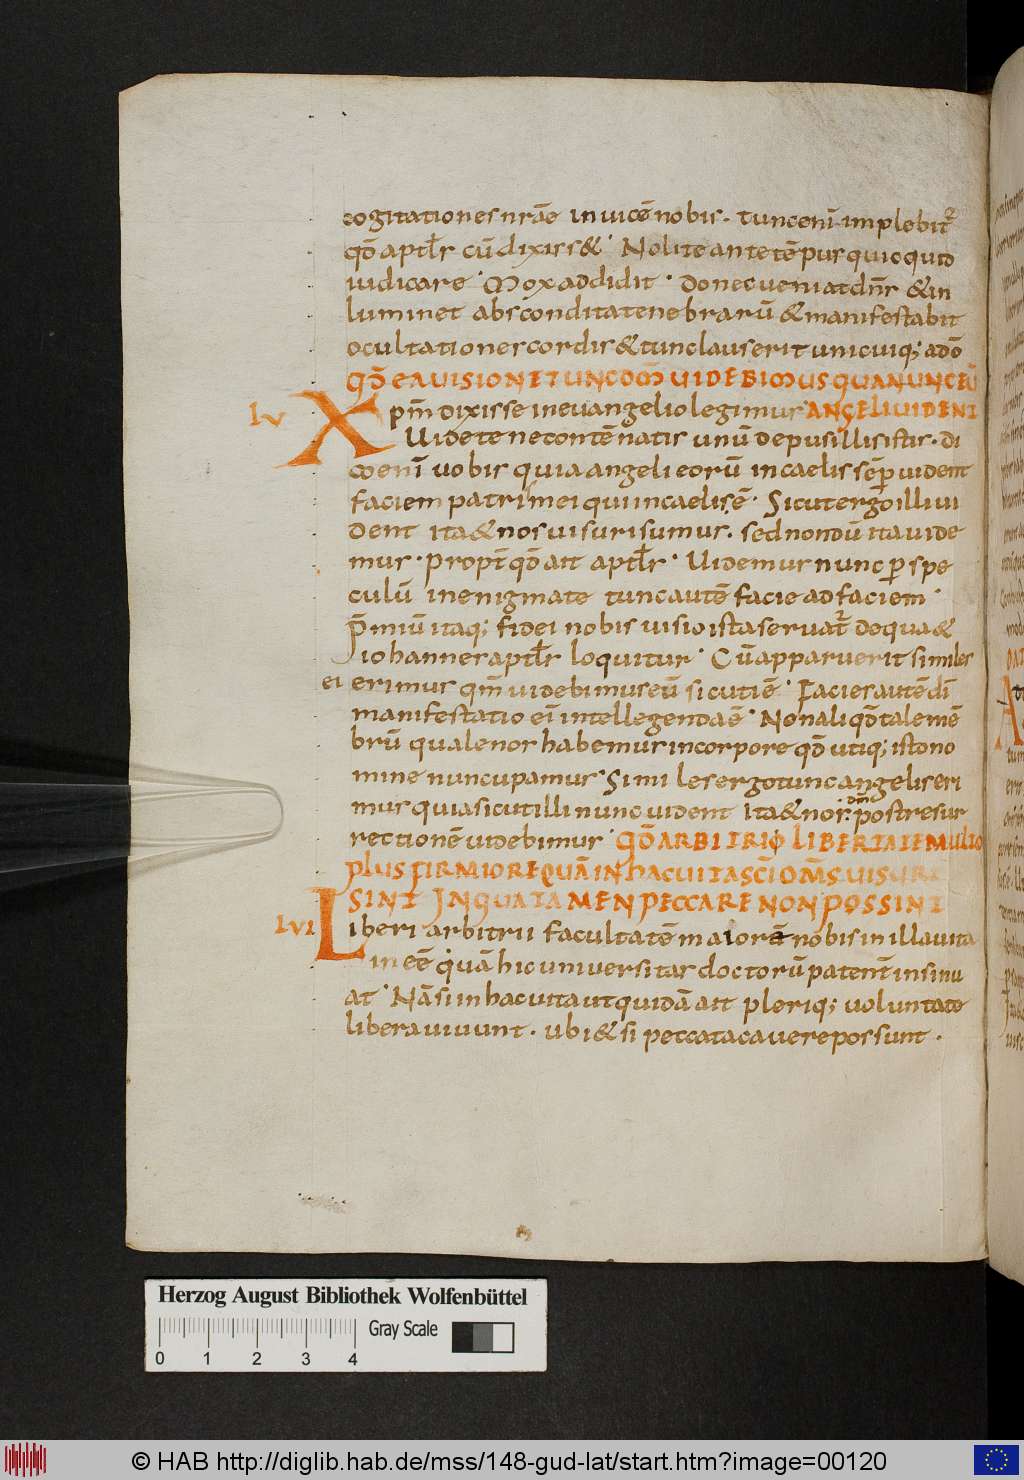 cogitationes nrāe inuicē nobis. tunc eni̅ implebit̅
qđ aptl̅s cū dixiss& Nolite ante tēpus quicquid
iudicare Mox addidit donec ueniat dn̅s & in
luminet abscondita tenebrarū & manifestabit
occultationes cordis & tunc laus erit unicuiq; a dō
QĐ EA UISIONE TUNC DOM̅ UIDEBIMUS QUA NUNC EŪ
LV Xpm̅ dixisse in euangelio legimus ANGELI UIDENT
Uidete ne contēnatis unū de pusillis istis. di
co eni̅ uobis quia angeli eorū in caelis sēp uident
faciem patris mei qui in caelis ē. Sicut ergo illi ui
dent ita & nos uisuri sumus. sed nondū ita uide
mus. propt̅ qđ ait aptl̅s Uidemus nunc p spe
culū in enigmate tunc autē facie ad faciem
p̅miū itaq; fidei nobis uisio ista seruat̅ de qua &
iohannes aptl̅s loquitur Cū apparuerit similes
ei erimus qm̅ uidebimus eū sicuti ē Facies autē dī
manifestatio ei̅ intellegenda ē Non aliqđ tale mē
brū quale nos habemus in corpore qđ utiq; isto no
mine nuncupamus Similes ergo tunc angelis eri
mus quia sicut illi nunc uident Ita & nos. dm̅ post resur
rectionē uidebimus QĐ ARBITRIO LIBERTATEM ULTO
PLUS FIRMIORE QUĀ IN HAC UITA SCĪ OM̅S UISURI
SINT IN QUA TAMEN PECCARE NON POSSINT
LVI Liberi arbitrii facultatē maiorē nobis in illa uita
in eē quā hic uniuersitas doctorū patent̅ insinu
at Nā si in hac uita ut quidā ait pleriq; uoluntate
libera uiuunt. ubi & si peccata cauere possunt.
Herzog August Bibliothek Wolfenbüttel
Gray Scale
0 1 2 3 4
© HAB http://diglib.hab.de/mss/148-gud-lat/start.htm?image=00120